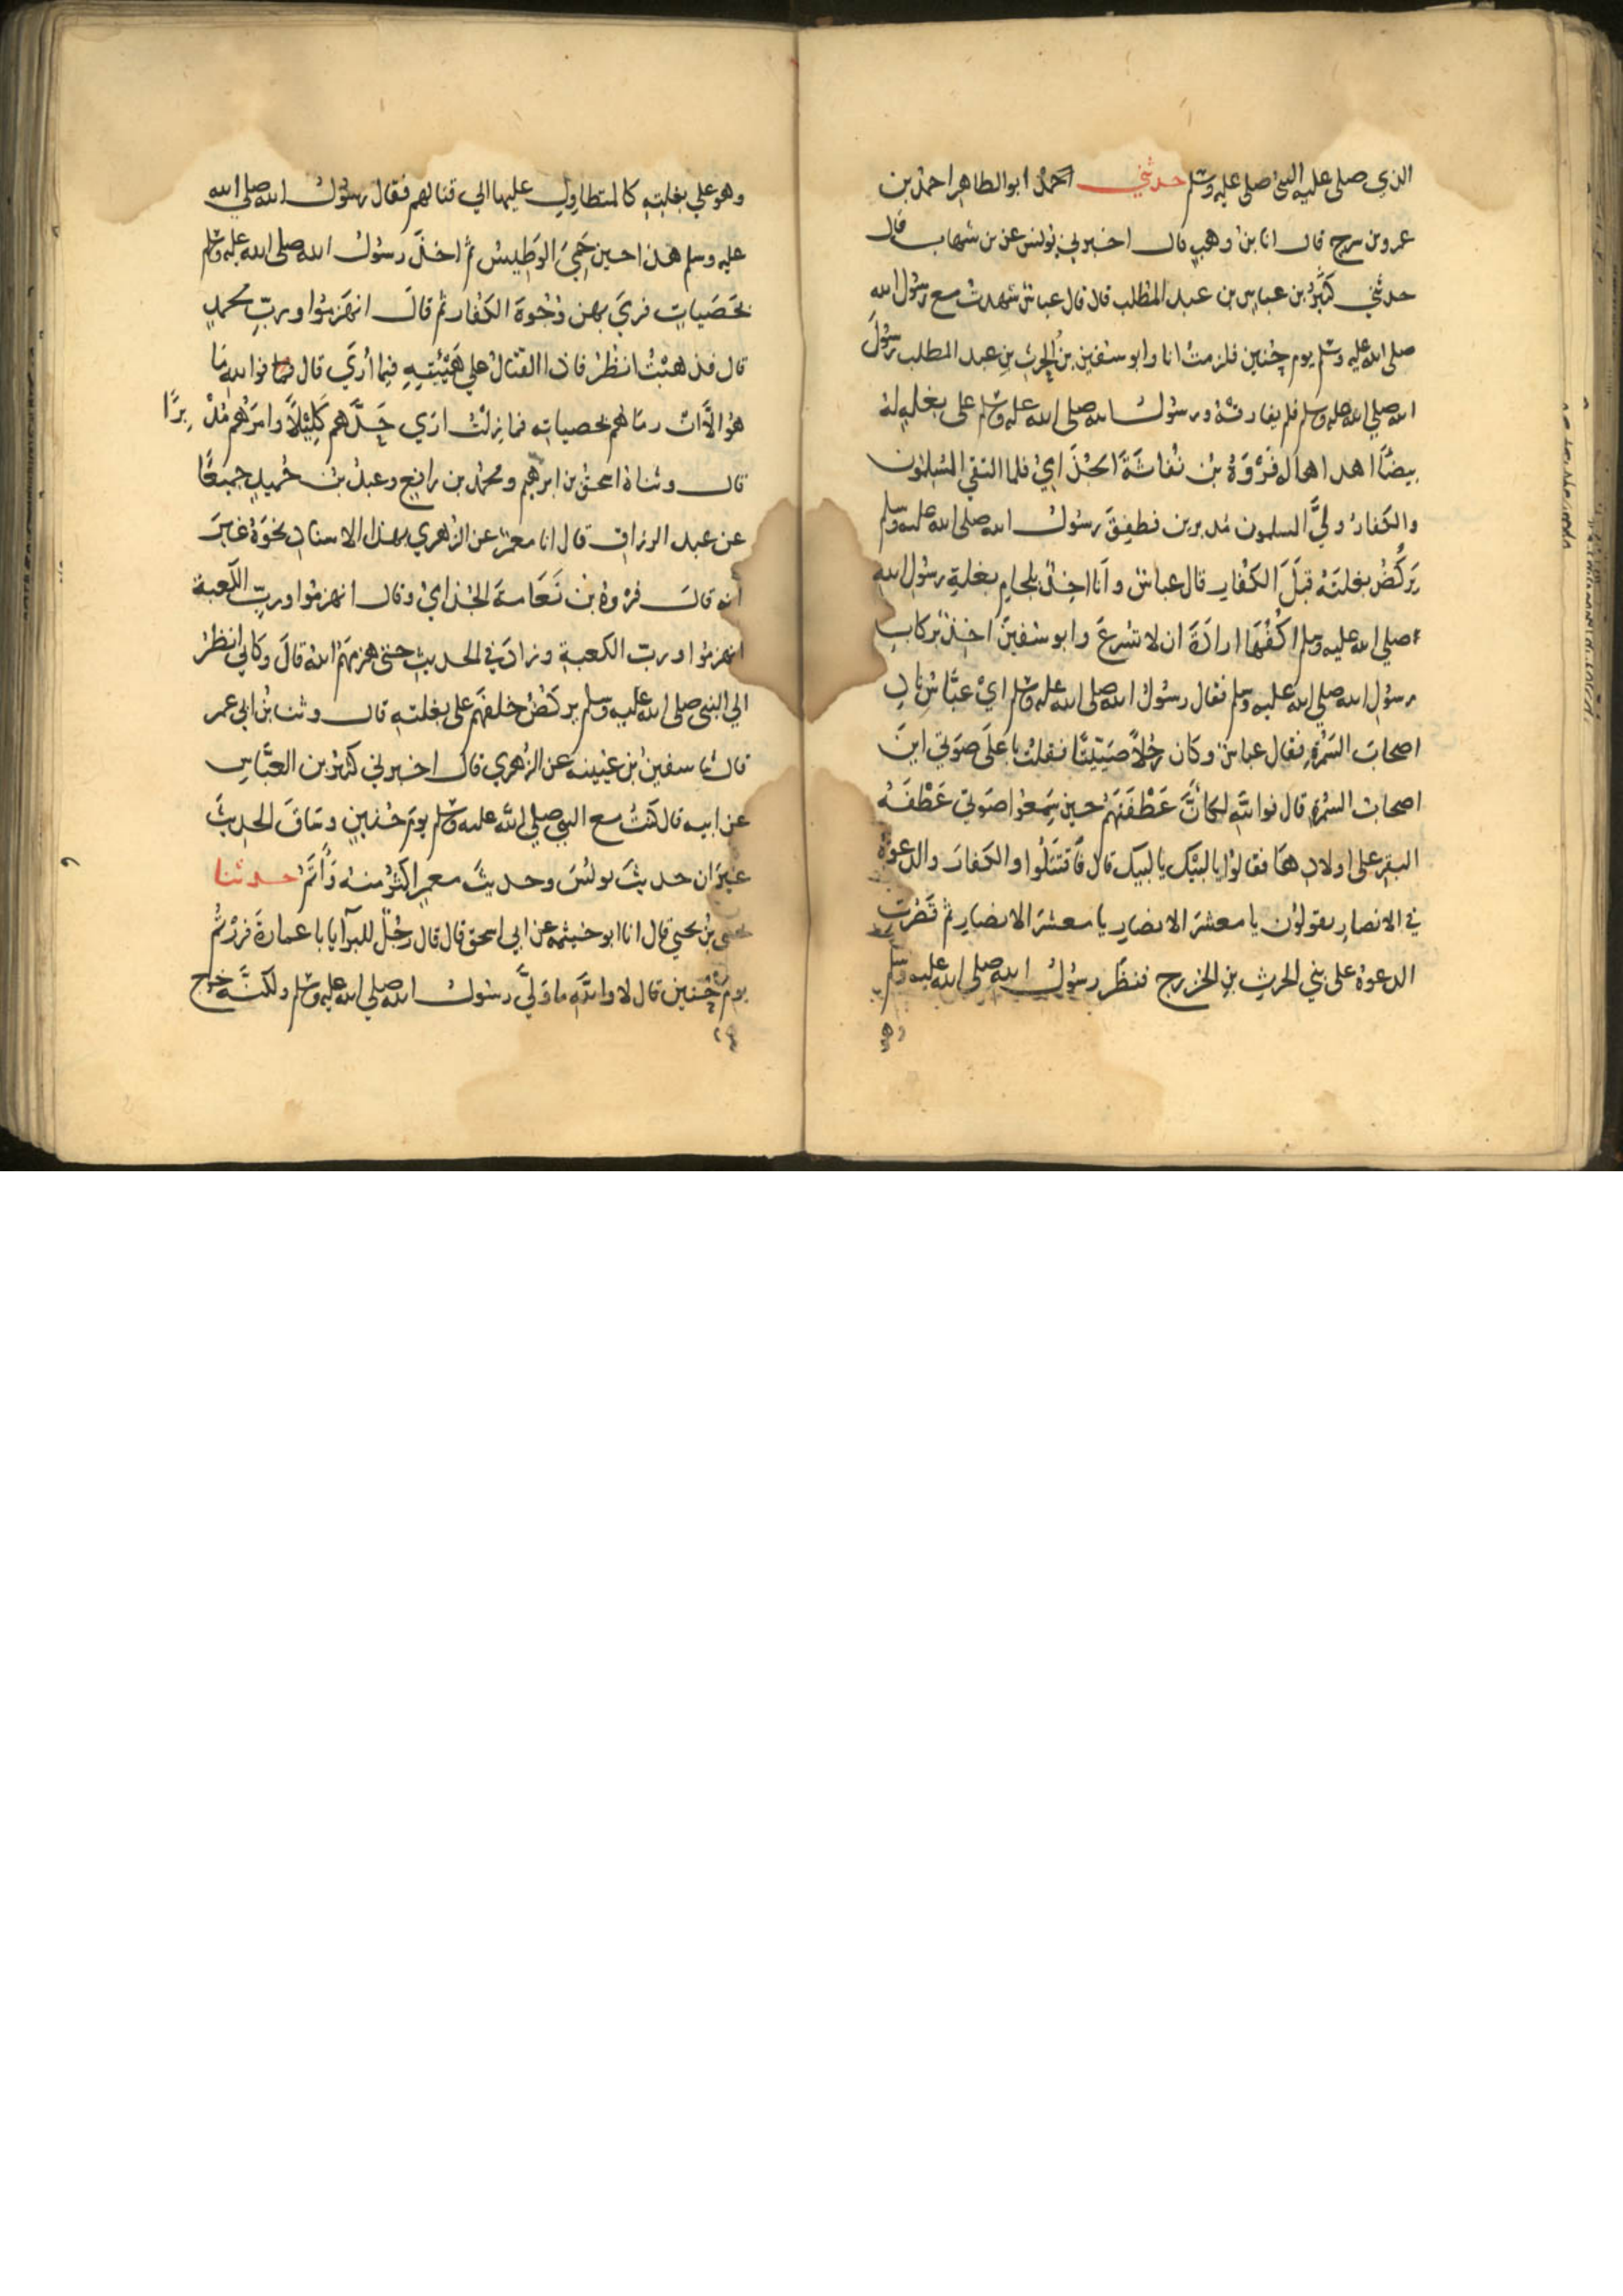 الذي صلى عليه النبي صلى عليه وسلم حدثني احمد ابو الطاهر احمد بن
عمرو بن سرح قال انا بن وهب قال اخبرني يونس عن بن شهاب قال
حدثني كثير بن عباس بن عبد المطلب قال قال عباس شهدت مع رسول الله
صلى الله عليه وسلم يوم حنين فلزمت انا وابو سفين بن الحرث بن عبد المطلب رسول
الله صلى الله عليه وسلم فلم يفارقه ورسول الله صلى الله عليه وسلم على بغلة له
بيضا اهداها له فروة بن نفاثة الجذامي فلما التقى المسلمون
والكفار ولى المسلمون مدبرين فطفق رسول الله صلى الله عليه وسلم
يركض بغلته قبل الكفار قال عباس وانا اخذ بلجام بغلة رسول الله
صلى الله عليه وسلم اكفها ارادة ان لا تسرع وابو سفين اخذ بركاب
رسول الله صلى الله عليه وسلم فقال رسول الله صلى الله عليه وسلم اي عباس ناد
اصحاب السمرة فقال عباس وكان رجلا صيتا فقلت باعلى صوتي اين
اصحاب السمرة قال فوالله لكان عطفتهم حين سمعوا صوتي عطفة
البقر على اولادها فقالوا يا لبيك يا لبيك قال فاقتتلوا والكفار والدعوة
في الانصار يقولون يا معشر الانصار يا معشر الانصار ثم قصرت
الدعوة على بني الحرث بن الخزرج فنظر رسول الله صلى الله عليه وسلم
وهو على بغلته كالمتطاول عليها الي قتالهم فقال رسول الله صلى الله
عليه وسلم هذا حين حمي الوطيس ثم اخذ رسول الله صلى الله عليه وسلم
بحصيات فرمي بهن وجوه الكفار ثم قال انهزموا ورب محمد
قال فذهبت انظر فاذا القتال علي هيئته فيما اري قال فوالله ما
هو الا ان رماهم بحصياته فما زلت اري حدهم كليلا وامرهم مدبرا
قال وثناه اسحق بن ابرهيم ومحمد بن رافع وعبد بن حميد جميعا
عن عبد الرزاق قال انا معمر عن الزهري بهذا الاسناد نحوه غير
انه قال فروة بن نعامة الجذامي وقال انهزموا ورب الكعبة
انهزموا ورب الكعبة وزاد في الحديث حتى هزمهم الله قال وكاني انظر
الي النبي صلى الله عليه وسلم يركض خلفهم على بغلته قال وثنا بن ابي عمر
قال ثنا سفين بن عيينه عن الزهري قال اخبرني كثير بن العباس
عن ابيه قال كنت مع النبي صلى الله عليه وسلم يوم حنين وساق الحديث
غير ان حديث يونس وحديث معمر اكثر منه واتم حدثنا
يحيى بن يحيي قال انا ابو خيثمه عن ابي اسحق قال قال رجل للبرآ يا با عمارة فررتم
يوم حنين قال لا والله ما ولى رسول الله صلى الله عليه وسلم ولكنه خرج